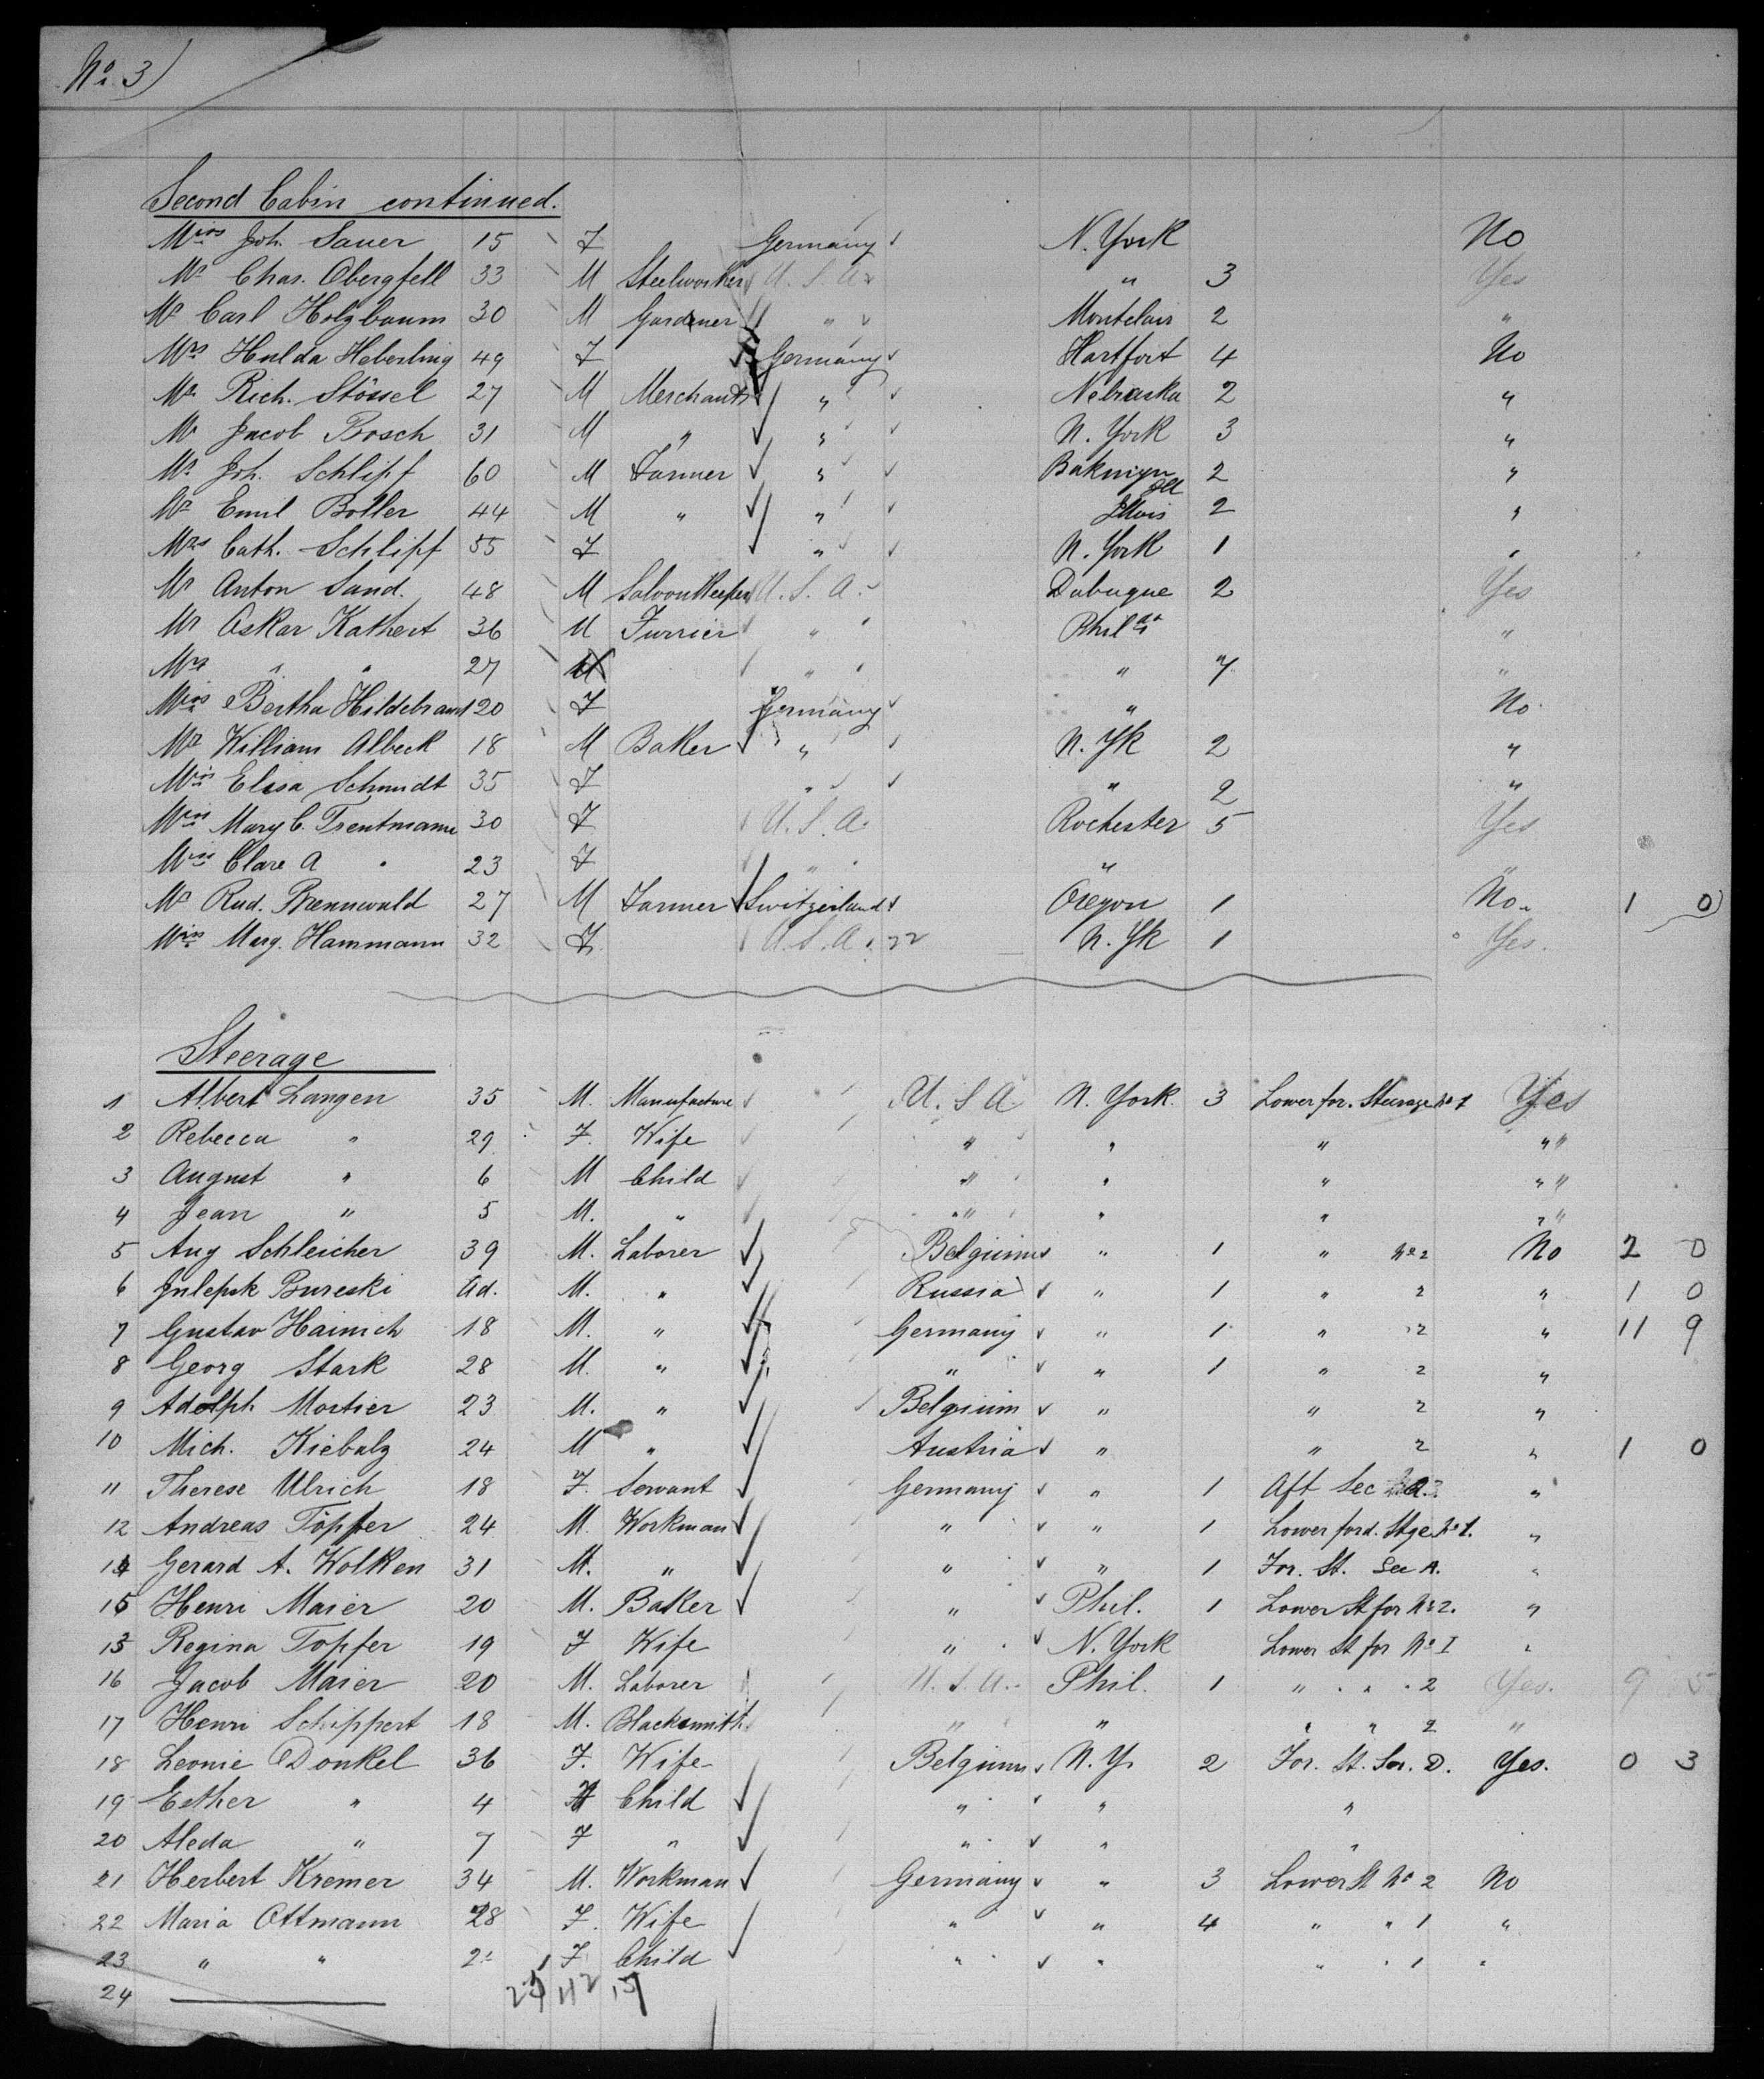 No. 3)
Second Cabin continued.
Miss Joh. Sauer 15 F Germany N. York No
Mr Chas. Obergfell 33 M Steelworker U. S. A. " 3 Yes
Mr Carl Holzbaum 30 M Gardener " Montclair 2 "
Mrs Hulda Heberling 49 F Germany Hartfort 4 No
Mr Rich. Stössel 27 M Merchant " Nebraska 2 "
Mr Jacob Bosch 31 M " " N. York 3 "
Mr Joh. Schlipf 60 M Farmer " 2 "
Mr Emil Boller 44 M " " 2 "
Mrs Cath. Schlipf 55 F " N. York 1 "
Mr Anton Sand. 48 M Saloonkeeper U. S. A. Dubuque 2 Yes
Mr Oskar Kathert 36 M Furrier " Phila "
Mrs " " 27 " " 7 "
Miss Bertha Hildebrandt 20 F Germany " No
Mr William Albeck 18 M Baker " N. Yk 2 "
Miss Elisa Schmidt 35 F " " 2 "
Miss Mary C. Trentmann 30 F U. S. A. Rochester 5 Yes
Miss Clare A " 23 F " " "
Mr Rud. Brennwald 27 M Farmer Switzerland Oregon 1 No. 1 0
Miss Marg. Hammann 32 F U. S. A. 22 N. Yk 1 Yes.
Steerage
1 Albert Langen 35 M. Manufacture U. S A. N. York 3 Lower for. Steerage No 1 Yes
2 Rebecca " 29 F. Wife " " " "
3 August " 6 M Child " " " "
4 Jean " 5 M. " " " " "
5 Aug Schleicher 39 M. Laborer Belgium " 1 " No 2 No 2 0
6 Bureski Ad. M. " Russia " 1 " 2 " 1 0
7 Gustav Hainich 18 M. " Germany " 1 " 2 " 11 9
8 Georg Stark 28 M. " " " 1 " 2 "
9 Adolph Mortier 23 M. " Belgium " " 2 "
10 Mich. Kiebalz 24 M " Austria " " 2 " 1 0
11 Therese Ulrich 18 F. Servant Germany " 1 Aft Sec "
12 Andreas Töpfer 24 M. Workman " " 1 Lower ford. Stge No 1. "
14 Gerard A. Wolken 31 M. " " " 1 For. St. Sec A. "
15 Henri Maier 20 M. Baker " Phil. 1 Lower St for No 2. "
13 Regina Topfer 19 F Wife " N. York Lower St for No I "
16 Jacob Maier 20 M. Laborer U. S. A. Phil. 1 " " " 2 Yes. 9 5
17 Henri Schippert 18 M. Blacksmith " " " " 2 "
18 Leonie Donkel 36 F. Wife Belgium N. Y. 2 For. St. D. Yes. 0 3
19 Esther " 4 Child " " "
20 Aleda " 7 F " " " "
21 Herbert Kremer 34 M. Workman Germany " 3 Lower St No 2 No
22 Maria Ottmann 28 F. Wife " " 4 " " 1 "
23 " " 2 F Child " " " " 1 "
24